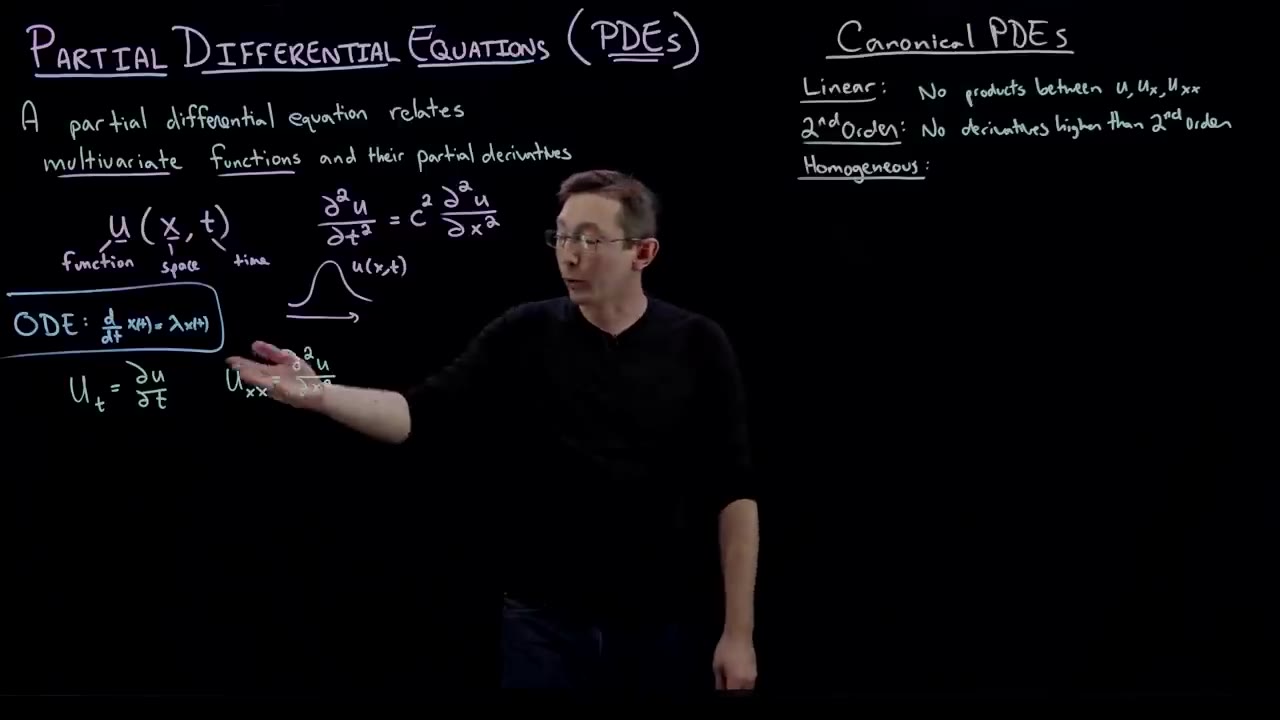 PARTIAL DIFFERENTIAL EQUATIONS (PDEs)
A partial differential equation relates
multivariate functions and their partial derivatives
u(x,t)
function space time
∂²u/∂t² = c² ∂²u/∂x²
u(x,t)
ODE: d/dt x(t) = λx(t)
U_t = ∂u/∂t
U_xx = ∂²u/∂x²
Canonical PDEs
Linear: No products between u, u_x, u_xx
2nd Order: No derivatives higher than 2nd Order
Homogeneous: